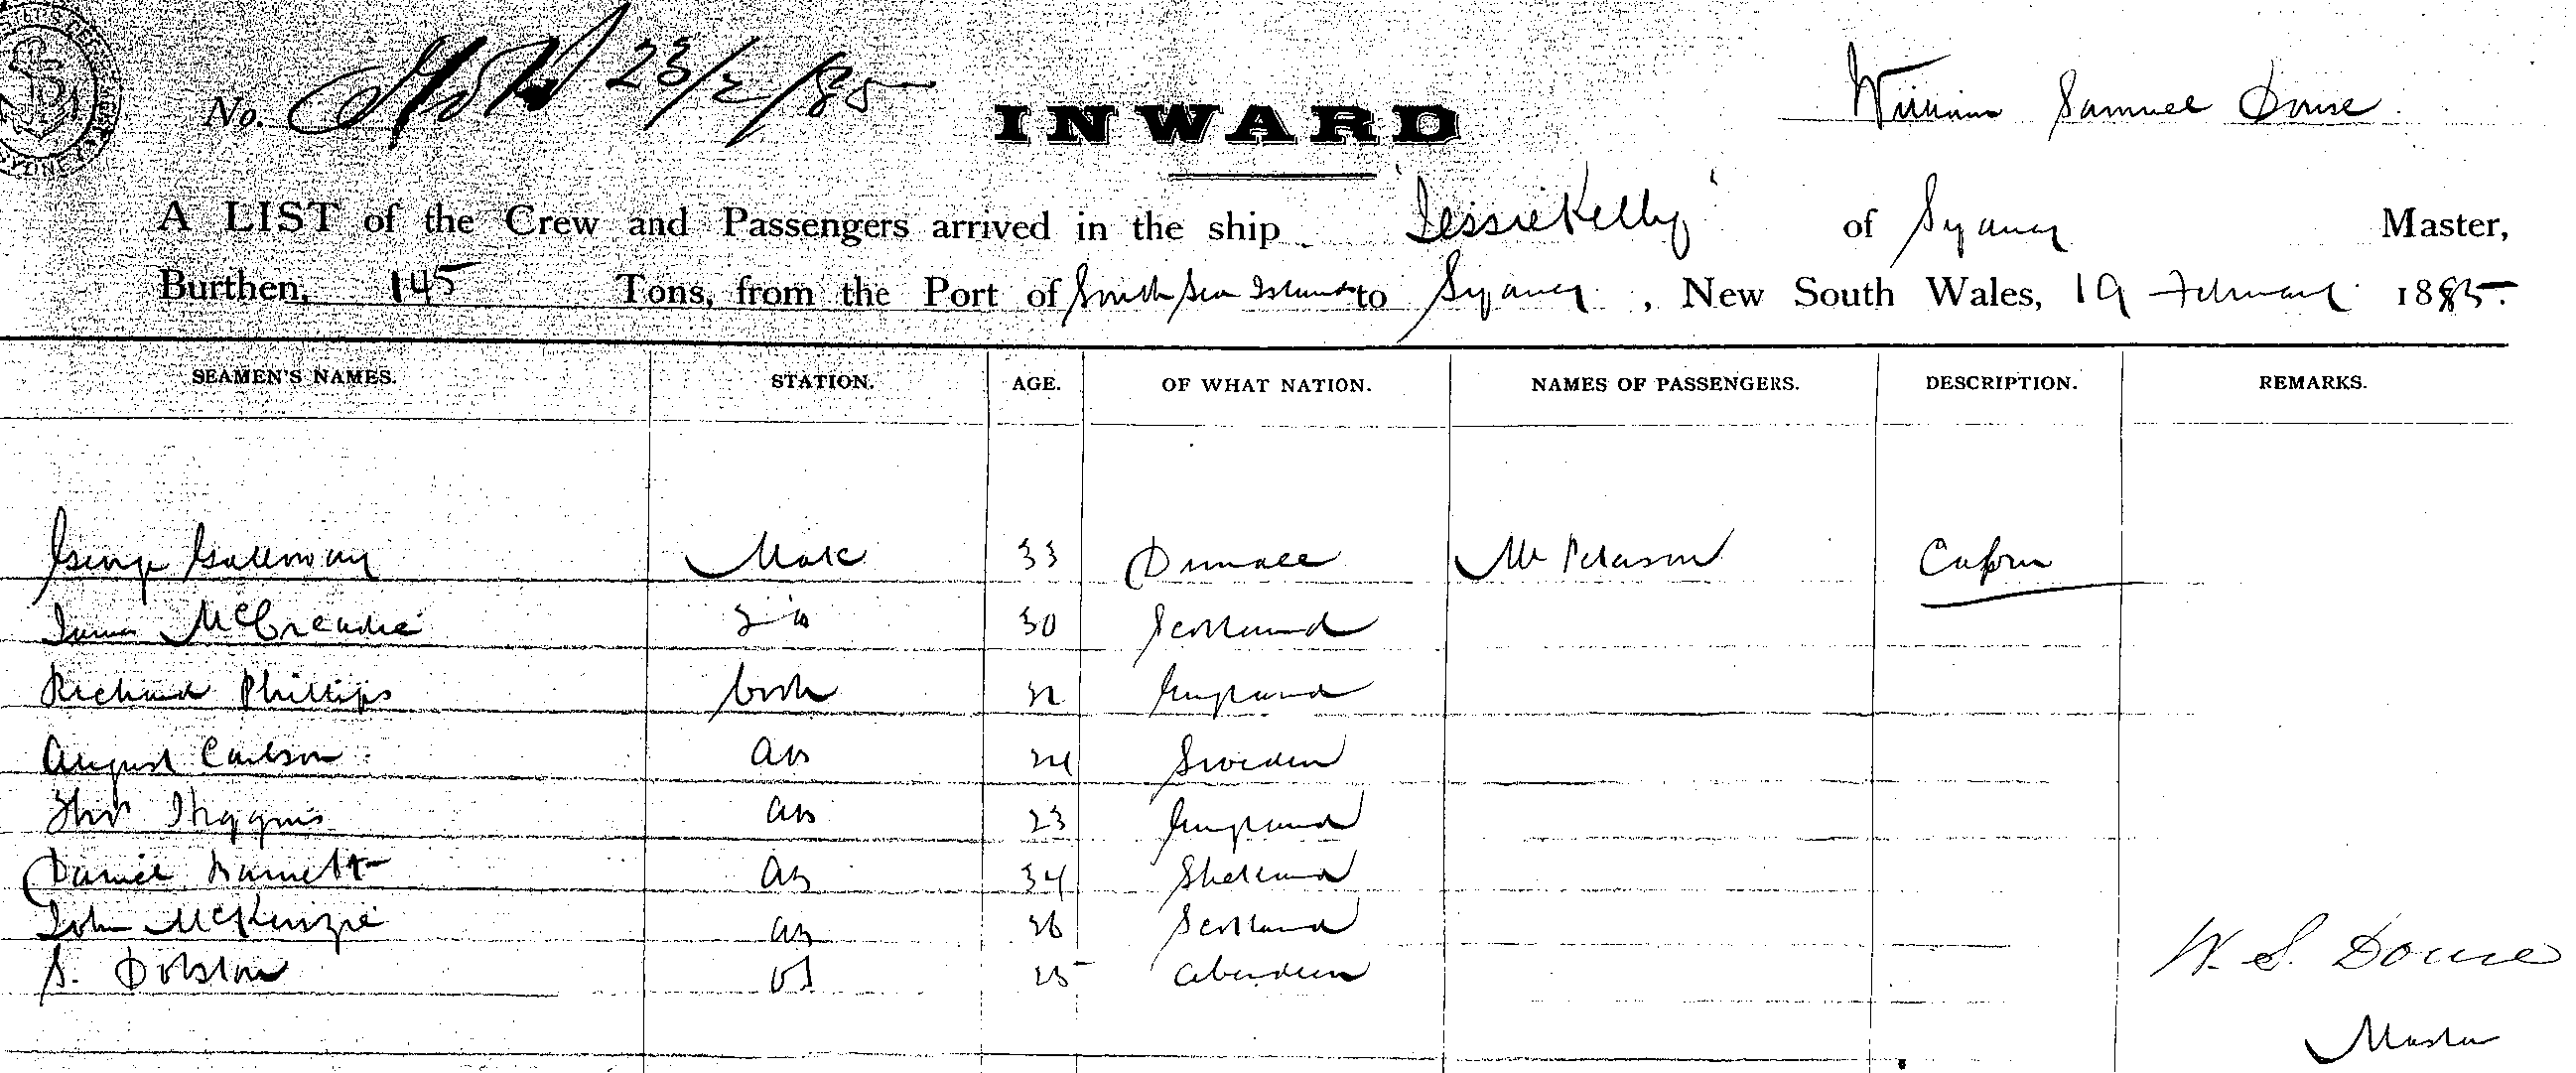 No. 23/2/85
INWARD
William Samuel Douse
A LIST of the Crew and Passengers arrived in the ship "Jessie Kelly" of Sydney Master,
Burthen, 145 Tons, from the Port of South Sea Islands to Sydney, New South Wales, 19 February 1885.
SEAMEN'S NAMES. STATION. AGE. OF WHAT NATION. NAMES OF PASSENGERS. DESCRIPTION. REMARKS.
George Galloway Mate 33 Dundee Mr Peterson Cabin
James McCreadie 30 Scotland
Richard Phillips Cook 32 England
August Carlson AB 24 Sweden
Thos Higgins AB 23 England
Daniel Barnett AB 34 Shetland
John McKenzie AB 26 Scotland
S. Dobston OS 25 Aberdeen
W. S. Douse
Master